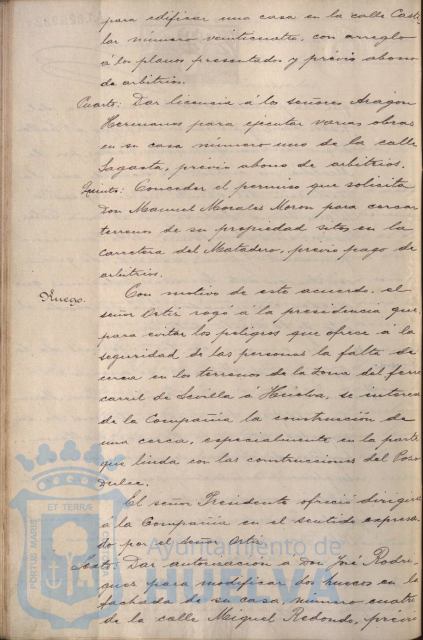 para edificar una casa en la calle Casti-
lar número veinticuatro, con arreglo
á los planos presentados y previo abono
de arbitrios.
Cuarto: Dar licencia á los señores Aragon
Hermanos para ejecutar varias obras
en su casa número uno de la calle
Sagasta, previo abono de arbitrios.
Quinto: Conceder el permiso que solicita
Don Manuel Morales Moron para cercar
terreno de su propiedad sito en la
carretera del Matadero, previo pago de
arbitrios.
Ruego. Con motivo de este acuerdo, el
señor Ortiz rogó á la presidencia que
para evitar los peligros que ofrece á la
seguridad de las personas la falta de
cerca en los terrenos de la zona del ferro
carril de Sevilla á Huelva, se interese
de la Compañia la construcción de
una cerca, especialmente en la parte
que linda con las construcciones del Pozo
Dulce.
El señor Presidente ofreció dirigirse
á la Compañia en el sentido expresa-
do por el señor Ortiz.
Sexto: Dar autorizacion á Don José Rodri-
guez para modificar dos huecos en la
fachada de su casa, número cuatro
de la calle Miguel Redondo, previo
PORTUS MARIS ET TERRÆ
Ayuntamiento de
HUELVA